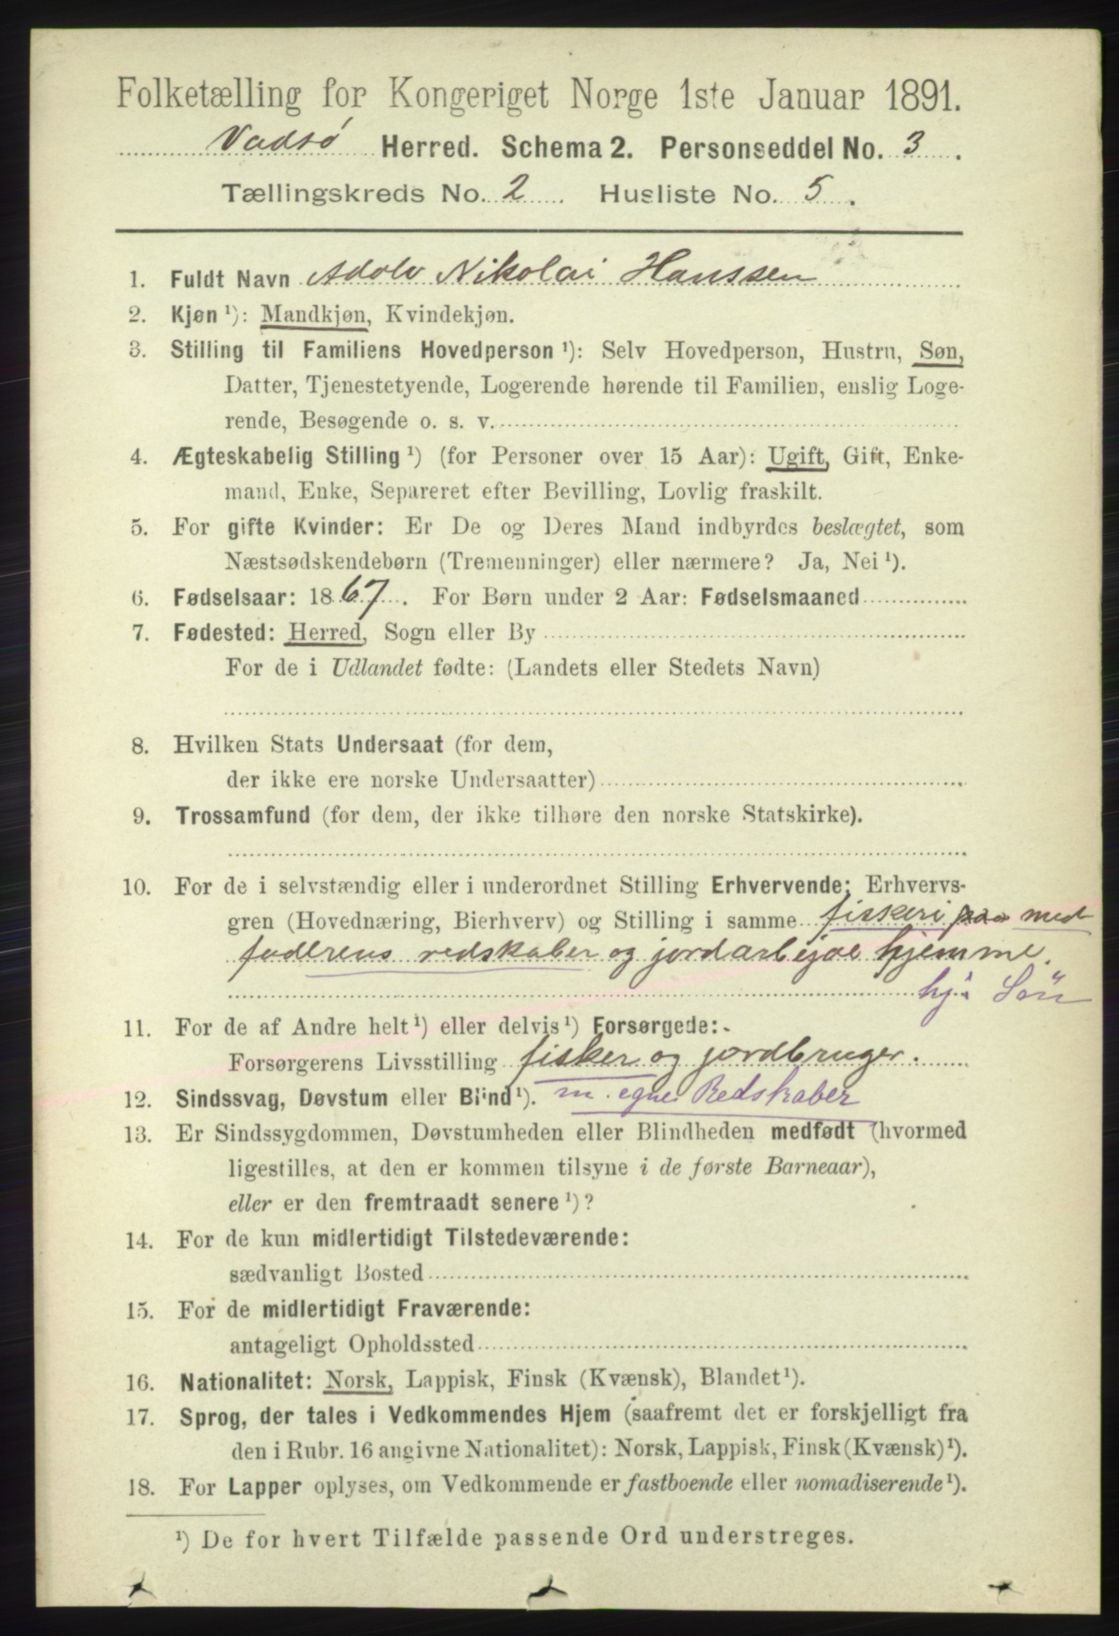 Folketælling for Kongeriget Norge 1ste Januar 1891.
Vadsø Herred. Schema 2. Personseddel No. 3.
Tællingskreds No. 2. Husliste No. 5.
1. Fuldt Navn Adolv Nikolai Hanssen
2. Kjøn ¹): Mandkjøn, Kvindekjøn.
3. Stilling til Familiens Hovedperson ¹): Selv Hovedperson, Hustru, Søn,
Datter, Tjenestetyende, Logerende hørende til Familien, enslig Loge-
rende, Besøgende o. s. v.
4. Ægteskabelig Stilling ¹) (for Personer over 15 Aar): Ugift, Gift, Enke-
mand, Enke, Separeret efter Bevilling, Lovlig fraskilt.
5. For gifte Kvinder: Er De og Deres Mand indbyrdes beslægtet, som
Næstsødskendebørn (Tremenninger) eller nærmere? Ja, Nei ¹).
6. Fødselsaar: 1867. For Børn under 2 Aar: Fødselsmaaned
7. Fødested: Herred, Sogn eller By
For de i Udlandet fødte: (Landets eller Stedets Navn)
8. Hvilken Stats Undersaat (for dem,
der ikke ere norske Undersaatter)
9. Trossamfund (for dem, der ikke tilhøre den norske Statskirke).
10. For de i selvstændig eller i underordnet Stilling Erhvervende: Erhvervs-
gren (Hovednæring, Bierhverv) og Stilling i samme fiskeri paa med
faderens redskaber og jordarbejde hjemme.
hj. Søn
11. For de af Andre helt ¹) eller delvis ¹) Forsørgede:
Forsørgerens Livsstilling fisker og jordbruger.
12. Sindssvag, Døvstum eller Blind ¹). m. egne Redskaber
13. Er Sindssygdommen, Døvstumheden eller Blindheden medfødt (hvormed
ligestilles, at den er kommen tilsyne i de første Barneaar),
eller er den fremtraadt senere ¹)?
14. For de kun midlertidigt Tilstedeværende:
sædvanligt Bosted
15. For de midlertidigt Fraværende:
antageligt Opholdssted
16. Nationalitet: Norsk, Lappisk, Finsk (Kvænsk), Blandet ¹).
17. Sprog, der tales i Vedkommendes Hjem (saafremt det er forskjelligt fra
den i Rubr. 16 angivne Nationalitet): Norsk, Lappisk, Finsk (Kvænsk) ¹).
18. For Lapper oplyses, om Vedkommende er fastboende eller nomadiserende ¹).
¹) De for hvert Tilfælde passende Ord understreges.